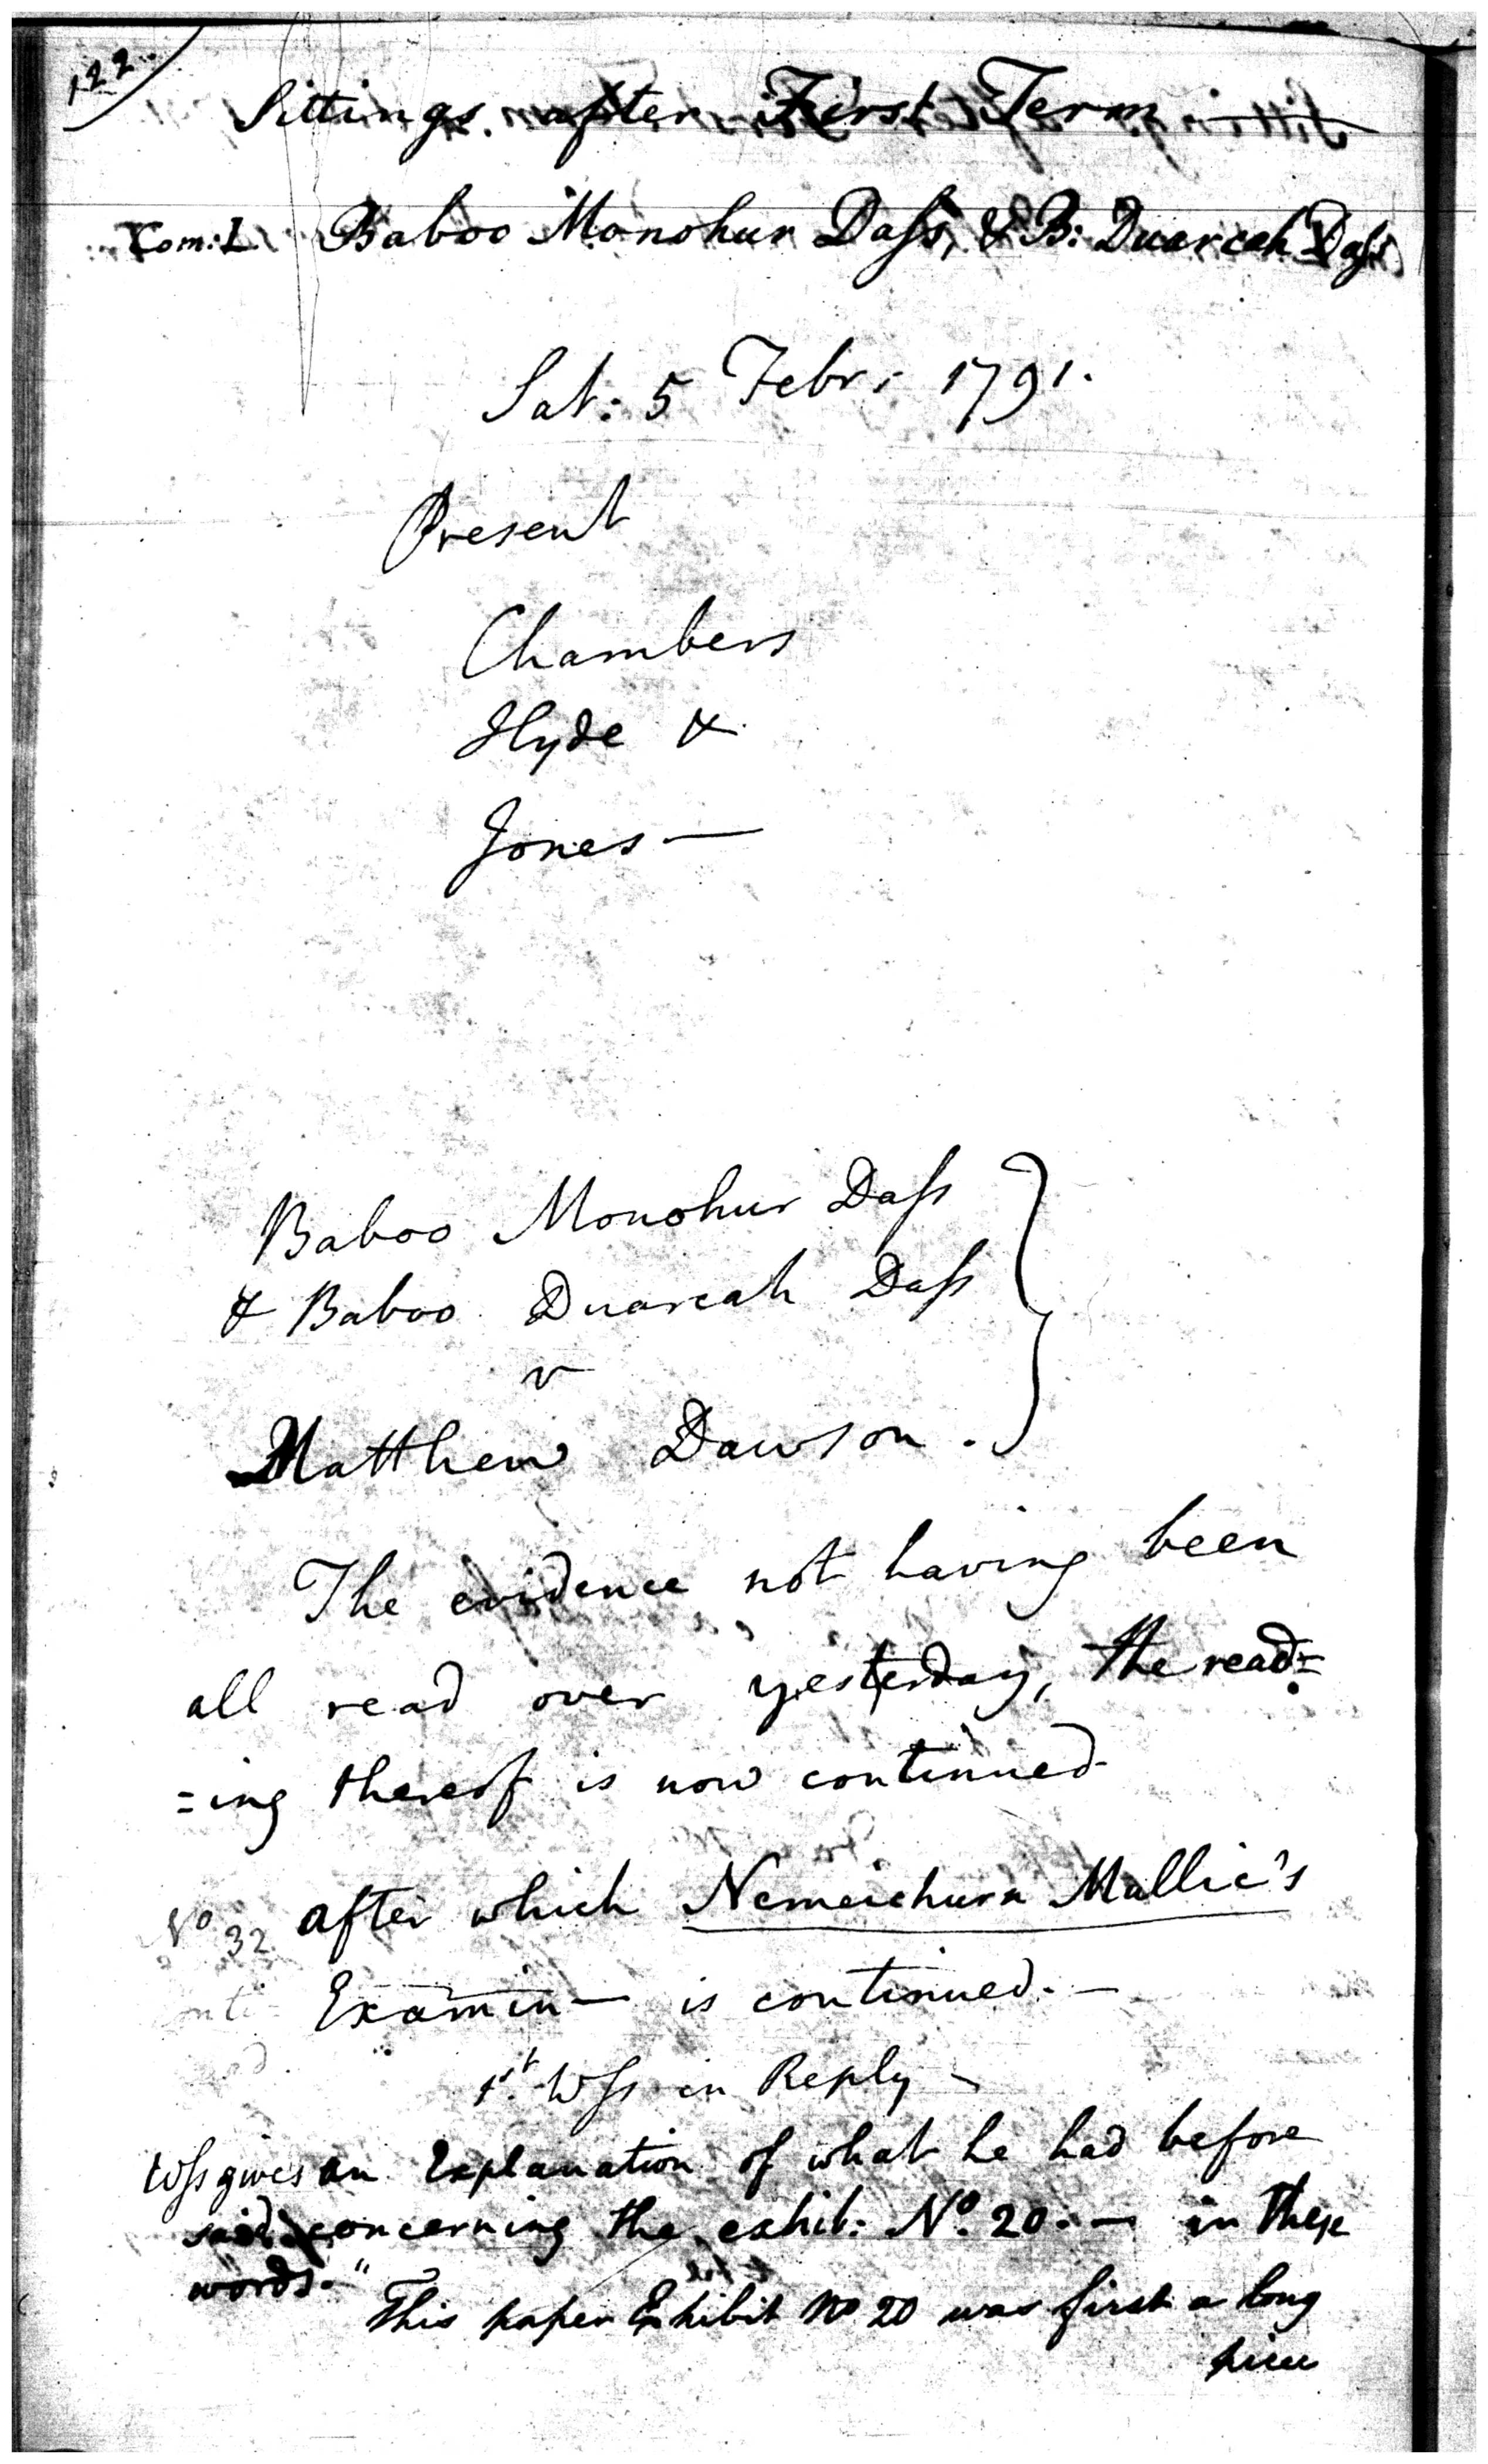 122.
Sittings after First Term
Com: L Baboo Monohur Daſs, & B: Duarcah Daſs
Sat: 5 Febr: 1791.
Present
Chambers
Hyde &
Jones —
Baboo Monohur Daſs
& Baboo Duarcah Daſs
v
Matthew Dawson.
The evidence not having been
all read over yesterday, the read=
=ing thereof is now continued
No 32 after which Nemeichurn Mallic's
Examin— is continued. —
1st Wſs in Reply —
Wſs gives an Explanation of what he had before
said concerning the exhib: No. 20. — in these
words. — "This paper Exhibit No 20 was first a long
piece